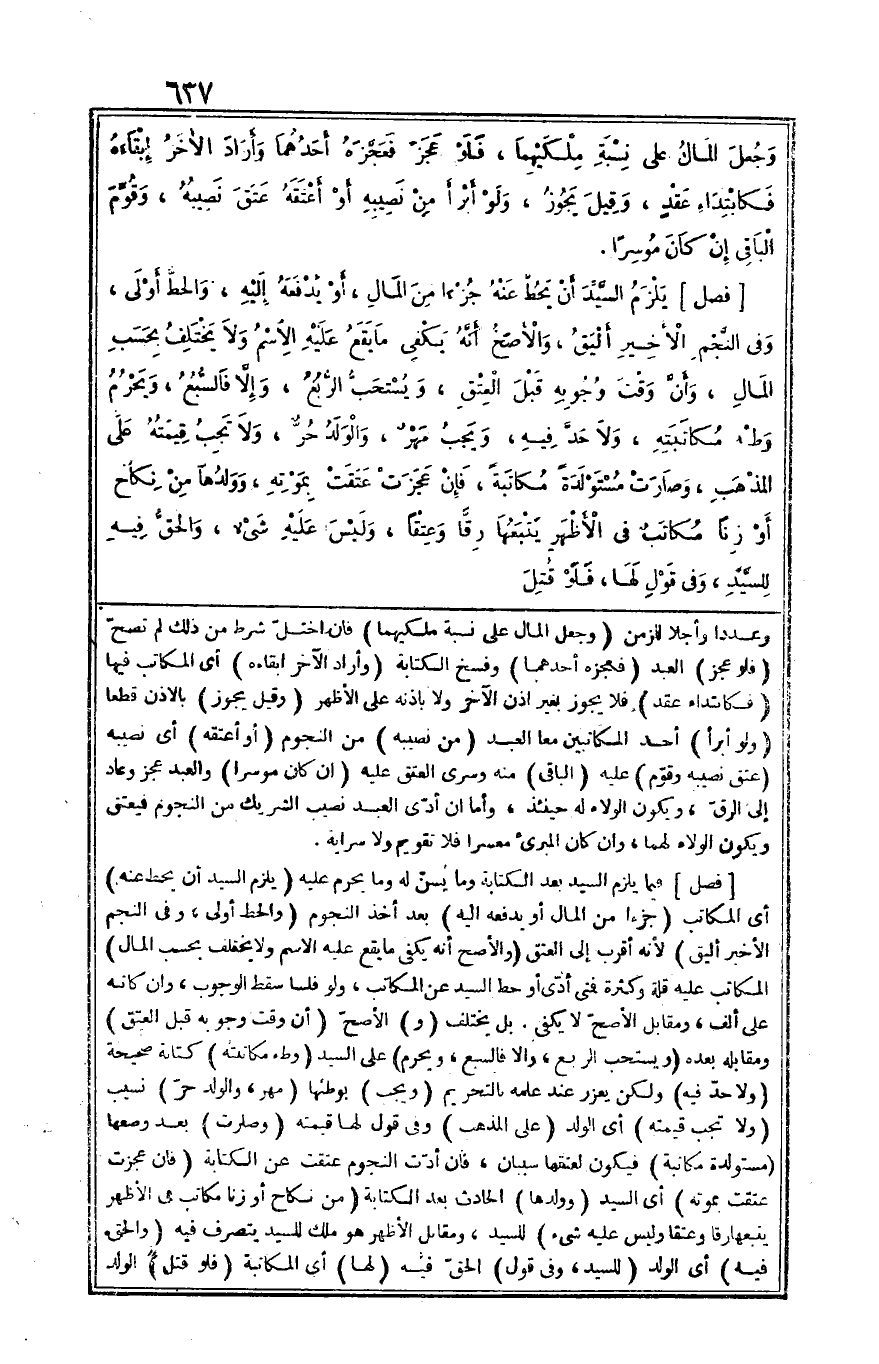 ٦٣٧
وَجُعِلَ الْمَالُ عَلَى نِسْبَةِ مِلْكَيْهِمَا ، فَلَوْ عَجَزَ فَعَجَّزَهُ أَحَدُهُمَا وَأَرَادَ الْآخَرُ إِبْقَاءَهُ
فَكَابْتِدَاءِ عَقْدٍ ، وَقِيلَ يَجُوزُ ، وَلَوْ أَبْرَأَ مِنْ نَصِيبِهِ أَوْ أَعْتَقَهُ عَتَقَ نَصِيبُهُ ، وَقُوِّمَ
الْبَاقِى إِنْ كَانَ مُوسِرًا .
[ فصل ] يَلْزَمُ السَّيِّدَ أَنْ يَحُطَّ عَنْهُ جُزْءًا مِنَ الْمَالِ ، أَوْ يَدْفَعَهُ إِلَيْهِ ، وَالْحَطُّ أَوْلَى ،
وَفِى النَّجْمِ الْأَخِيرِ أَلْيَقُ ، وَالْأَصَحُّ أَنَّهُ يَكْفِى مَا يَقَعُ عَلَيْهِ الِاسْمُ وَلَا يَخْتَلِفُ بِحَسَبِ
الْمَالِ ، وَأَنَّ وَقْتَ وُجُوبِهِ قَبْلَ الْعِتْقِ ، وَيُسْتَحَبُّ الرُّبُعُ ، وَإِلَّا فَالسُّبُعُ ، وَيَحْرُمُ
وَطْءُ مُكَاتَبَتِهِ ، وَلَا حَدَّ فِيهِ ، وَيَجِبُ مَهْرٌ ، وَالْوَلَدُ حُرٌّ ، وَلَا تَجِبُ قِيمَتُهُ عَلَى
الْمَذْهَبِ ، وَصَارَتْ مُسْتَوْلَدَةً مُكَاتَبَةً ، فَإِنْ عَجَزَتْ عَتَقَتْ بِمَوْتِهِ ، وَوَلَدُهَا مِنْ نِكَاحٍ
أَوْ زِنًا مُكَاتَبٌ فِى الْأَظْهَرِ يَتْبَعُهَا رِقًّا وَعِتْقًا ، وَلَيْسَ عَلَيْهِ شَىْءٌ ، وَالْحَقُّ فِيهِ
لِلسَّيِّدِ ، وَفِى قَوْلٍ لَهَا ، فَلَوْ قُتِلَ
وعددا وأجلا للزمن ( وجعل المال على نسبة ملكيهما ) فان اختلّ شرط من ذلك لم تصحّ
( فلو عجز ) العبد ( فعجزه أحدهما ) وفسخ الكتابة ( وأراد الآخر ابقاءه ) أى المكاتب فيها
( فكابتداء عقد ) فلا يجوز بغير اذن الآخر ولا باذنه على الأظهر ( وقيل يجوز ) بالاذن قطعا
( ولو أبرأ ) أحد المكاتبين معا العبد ( من نصيبه ) من النجوم ( أو أعتقه ) أى نصيبه
( عتق نصيبه وقوّم ) عليه ( الباقى ) منه وسرى العتق عليه ( ان كان موسرا ) والعبد عجز وعاد
إلى الرقّ ، ويكون الولاء له حينئذ ، وأما ان أدّى العبد نصيب الشريك من النجوم فيعتق
ويكون الولاء لهما ، وان كان المبرئ معسرا فلا تقويم ولا سراية .
[ فصل ] فيما يلزم السيد بعد الكتابة وما يسنّ له وما يحرم عليه ( يلزم السيد أن يحط عنه )
أى المكاتب ( جزءا من المال أو يدفعه اليه ) بعد أخذ النجوم ( والحط أولى ، وفى النجم
الأخير أليق ) لأنه أقرب إلى العتق ( والأصح أنه يكفى مايقع عليه الاسم ولا يختلف بحسب المال )
المكاتب عليه قلة وكثرة فمتى أدّى أو حط السيد عن المكاتب ، ولو فلسا سقط الوجوب ، وان كاتبه
على ألف ، ومقابل الأصحّ لا يكفى . بل يختلف ( و ) الأصحّ ( أن وقت وجوبه قبل العتق )
ومقابله بعده ( ويستحب الربع ، والا فالسبع ، ويحرم ) على السيد ( وطء مكاتبته ) كتابة صحيحة
( ولا حدّ فيه ) ولكن يعزر عند علمه بالتحريم ( ويجب ) بوطئها ( مهر ، والولد حرّ ) نسيب
( ولا تجب قيمته ) أى الولد ( على المذهب ) وفى قول لها قيمته ( وصارت ) بعد وضعها
( مستولدة مكاتبة ) فيكون لعتقها سببان ، فان أدّت النجوم عتقت عن الكتابة ( فان عجزت
عتقت بموته ) أى السيد ( وولدها ) الحادث بعد الكتابة ( من نكاح أو زنا مكاتب فى الأظهر
يتبعها رقا وعتقا وليس عليه شىء ) للسيد ، ومقابل الأظهر هو ملك للسيد يتصرف فيه ( والحق
فيه ) أى الولد ( للسيد ، وفى قول ) الحقّ فيه ( لها ) أى المكاتبة ( فلو قتل ) الولد